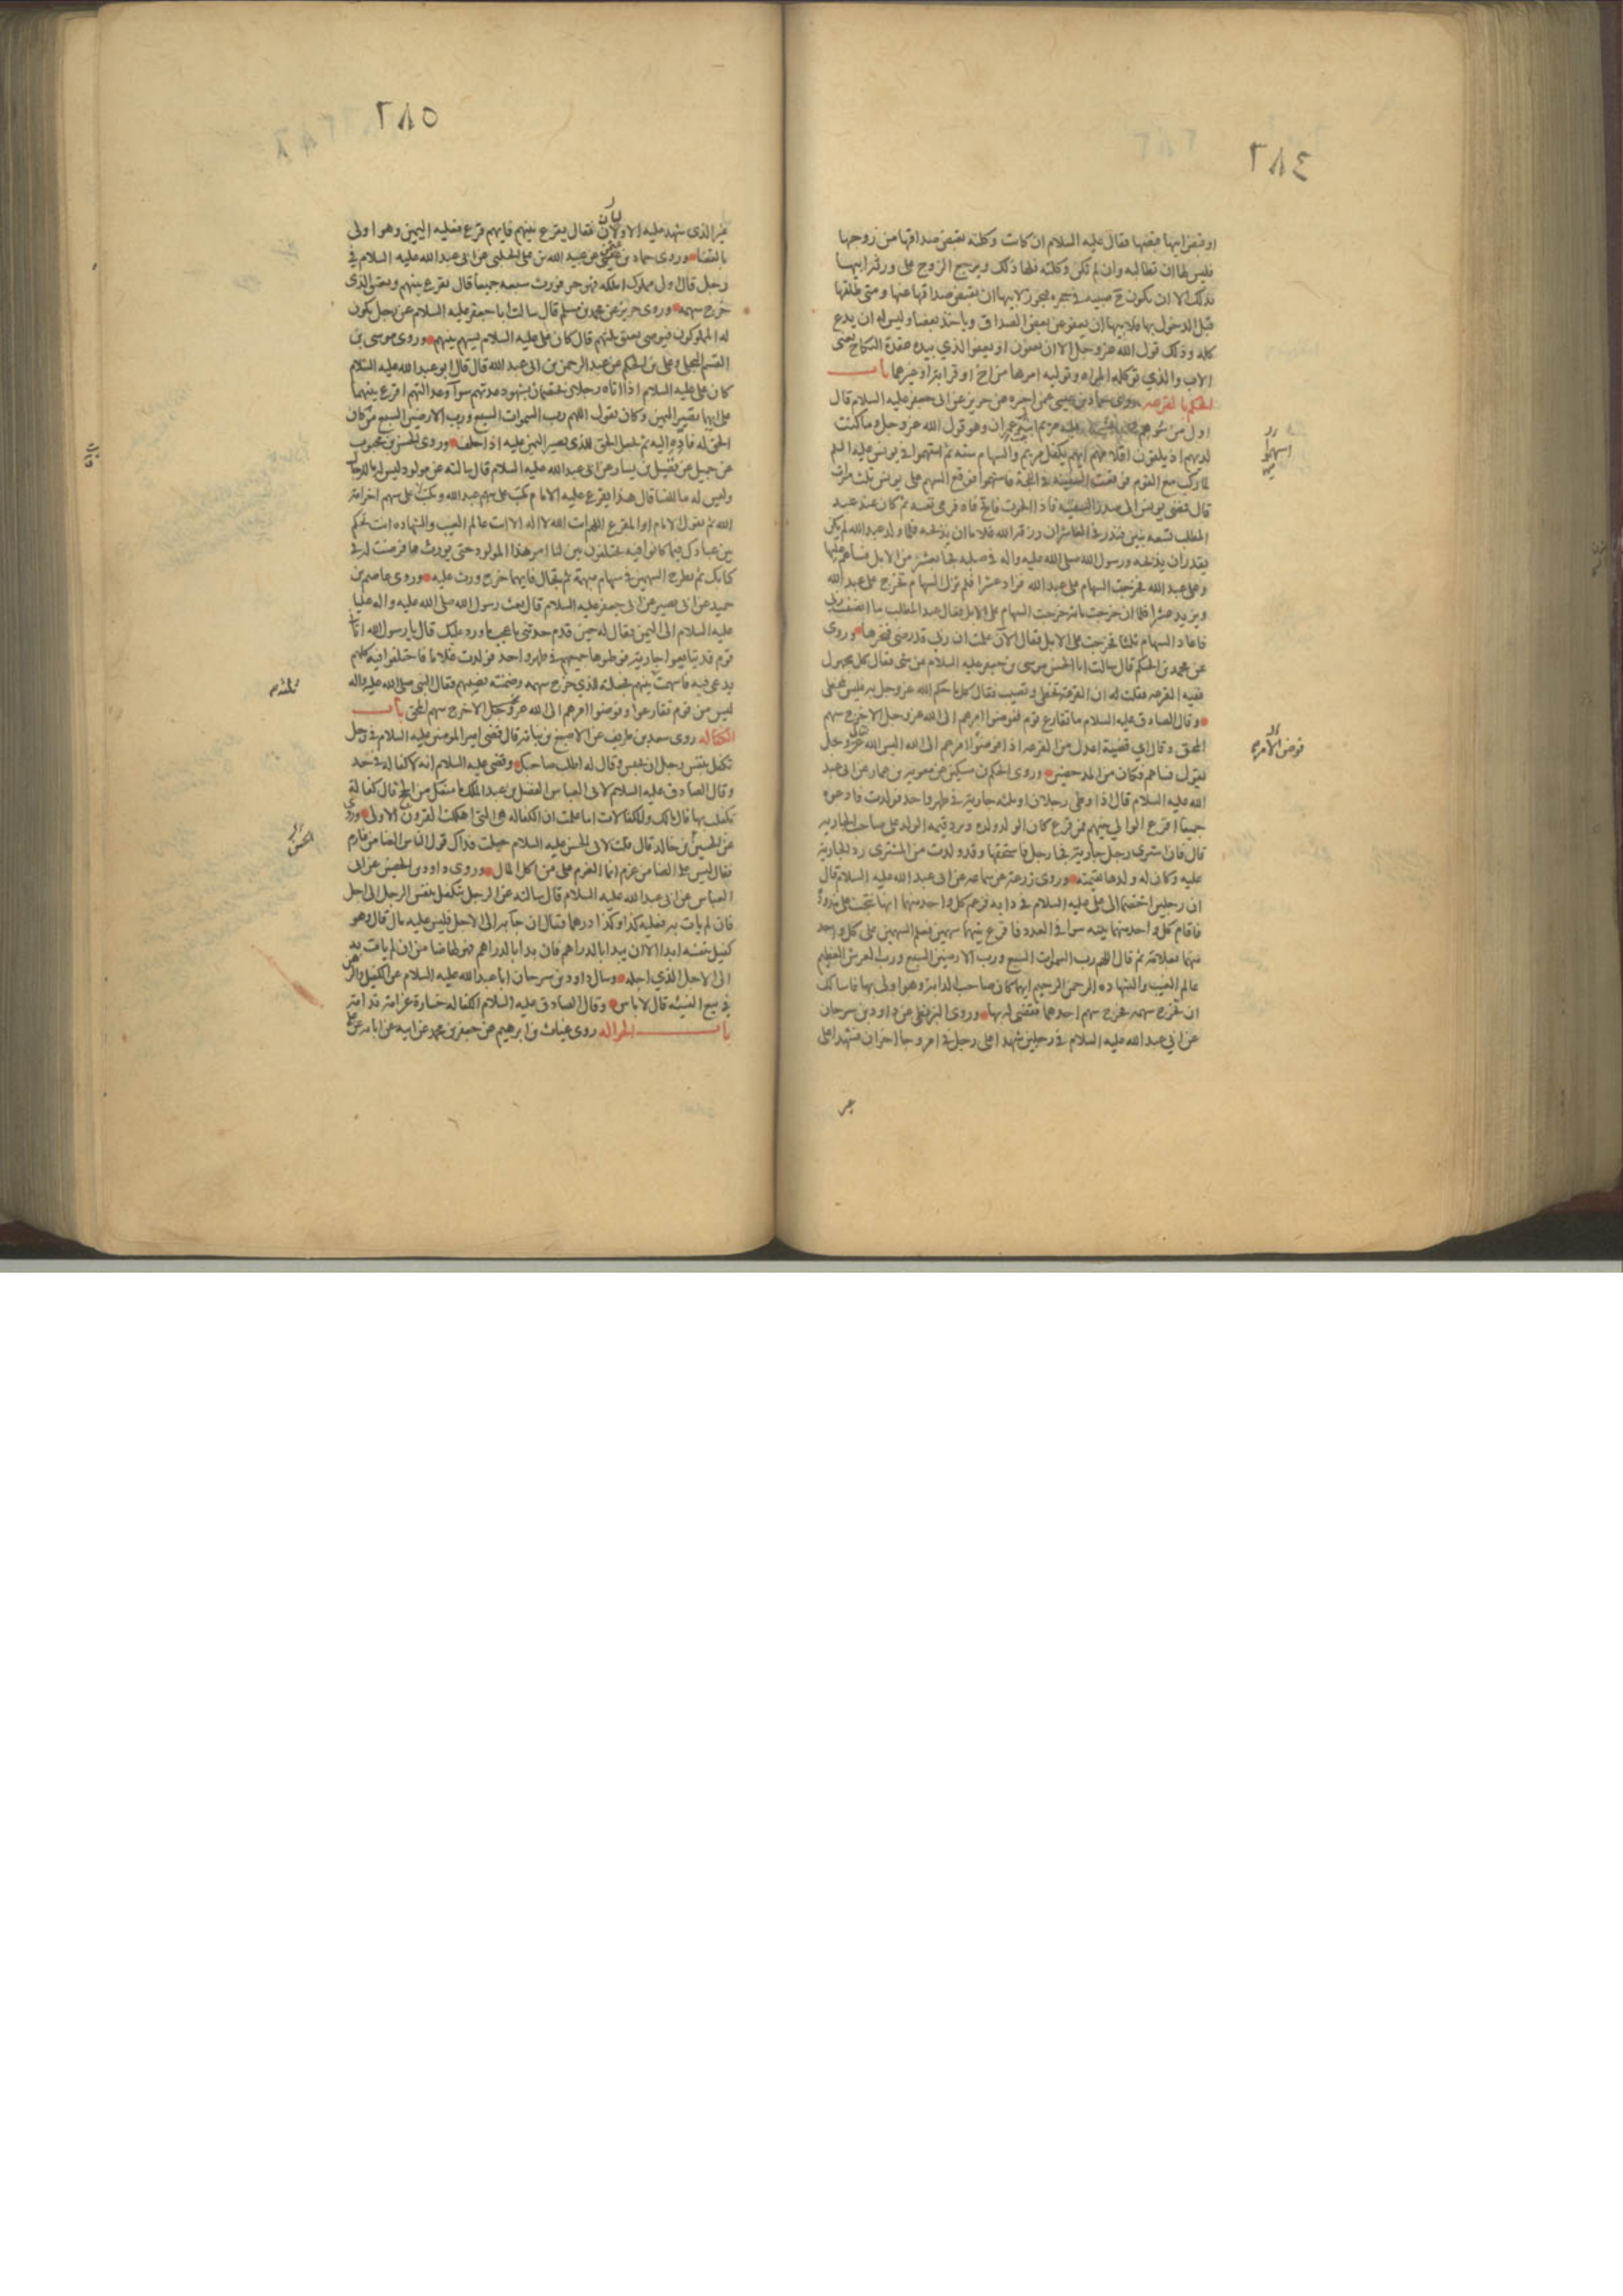 ٢٨٤
او قبض ابيها قبضها فقال عليه السلام ان كانت وكلته بقبض صداقها من زوجها
فليس لها ان تطالبه وان لم تكن وكلته فلها ذلك ويرجع الزوج على ورثة ابيها
بذلك الا ان تكون ح صبية في حجره فيجوز لابيها ان يقبض صداقها عنها ومتى طلقها
قبل الدخول بها فلابيها ان يعفو عن بعض الصداق وياخذ بعضا وليس له ان يدع
كله وذلك قول الله عز وجل الا ان يعفون او يعفو الذي بيده عقدة النكاح يعنى
الاب والذي توكله المراه وتوليه امرها من اخ او قرابة او غيرهما باب
الحكم بالقرعه روى حماد بن عيسى عمن اخبره عن حريز عن ابى جعفر عليه السلام قال
اول من سوهم عليه مريم ابنة عمران وهو قول الله عز وجل وما كنت
لديهم اذ يلقون اقلامهم ايهم يكفل مريم والسهام ستة ثم استهموا في يونس عليه السلم
لما ركب مع القوم فوقفت السفينة في اللجة فاستهموا فوقع السهم على يونس ثلث مرات
قال فمضى يونس الى صدر السفينة فاذا الحوت فاتح فاه فرمى نفسه ثم كان عند عبد
المطلب تسعة بنين فنذر في العاشر ان رزقه الله غلاما ان يذبحه فلما ولد عبدالله لم يكن
يقدر ان يذبحه ورسول الله صلى الله عليه واله في صلبه فجا بعشر من الابل فساهم عليها
وعلى عبد الله فخرجت السهام على عبد الله فزاد عشرا فلم تزل السهام تخرج على عبد الله
ويزيد عشرا فلما ان خرجت مائة خرجت السهام على الابل فقال عبد المطلب ما انصفت ربى
فاعاد السهام ثلثا فخرجت على الابل فقال الآن علمت ان ربى قد رضى فنحرها وروى
عن محمد بن الحكم قال سالت ابا الحسن موسى بن جعفر عليه السلام عن شى فقال كل مجهول
ففيه القرعه فقلت له ان القرعة تخطى وتصيب فقال كل ما حكم الله عز وجل به فليس بمخطى
وقال الصادق عليه السلام ما تقارع قوم ففوضوا امرهم الى الله عز وجل الا خرج سهم
المحق وقال اي قضية اعدل من القرعه اذا فوضوا امرهم الى الله اليس الله عز وجل
يقول فساهم فكان من المدحضين وروى الحكم بن مسكين عن معوية بن عمار عن ابى عبد
الله عليه السلام قال اذا وطى رجلان او ثلثه جارية في طهر واحد فولدت فادعوه
جميعا اقرع الوالى بينهم فمن قرع كان الولد ولده ويرد قيمه الولد على صاحب الجاريه
قال فان اشترى رجل جارية فجا رجل فاستحقها وقد ولدت من المشترى رد الجارية
عليه وكان له ولدها بقيمته وروى زرعة عن سماعه عن ابى عبد الله عليه السلام قال
ان رجلين اختصما الى على عليه السلام في دابه فزعم كل واحد منهما انها نتجت على مذوده
فاقام كل واحد منهما بينه سوا في العدد فاقرع بينهما سهمين فعلم السهمين على كل واحد
منهما بعلامة ثم قال اللهم رب السموات السبع ورب الارضين السبع ورب العرش العظيم
عالم الغيب والشهاده الرحمن الرحيم ايهما كان صاحب الدابة وهو اولى بها فاسالك
ان تخرج سهمه فخرج سهم احدهما فقضى له بها وروى البزنطى عن داود بن سرحان
عن ابي عبد الله عليه السلام في رجلين شهدا على رجل في امر وجا اخران فشهدا على
٢٨٥
غير الذى شهد عليه الاولان فقال يقرع بينهم فايهم قرع فعليه اليمين وهو اولى
بالقضا وروى حماد بن عيسى عن عبيد الله بن على الحلبى عن ابى عبد الله عليه السلام في
رجل قال اول مملوك املكه فهو حر فورث سبعه جميعا قال يقرع بينهم ويعتق الذى
خرج سهمه وروى حريز عن محمد بن مسلم قال سالت ابا جعفر عليه السلام عن رجل يكون
له المملوكون فيوصى بعتق ثلثهم قال كان على عليه السلام يسهم بينهم وروى موسى بن
القسم البجلى وعلى بن الحكم عن عبد الرحمن بن ابى عبد الله قال قال ابو عبد الله عليه السلام
كان على عليه السلام اذا اتاه رجلان يختصمان بشهود عدتهم سوآ وعدالتهم اقرع بينهما
على ايهما تصير اليمين وكان يقول اللهم رب السموات السبع ورب الارضين السبع من كان
الحق له فادِّه اليه ثم يجعل الحق للذى يصير اليمين عليه اذا حلف وروى الحسن بن محبوب
عن جميل عن فضيل بن يسار عن ابى عبد الله عليه السلام قال سالته عن مولود ليس له ما للرجال
وليس له ما للنسا قال هذا يقرع عليه الامام يكتب على سهم عبد الله ويكتب على سهم اخر امة
الله ثم يقول الامام او المقرع اللهم انت الله لا اله الا انت عالم الغيب والشهاده انت تحكم
بين عبادك فيما كانوا فيه يختلفون بين لنا امر هذا المولود حتى يورث ما فرضت له في
كتابك ثم يطرح السهمين في سهام مبهمة ثم يجال فايهما خرج ورث عليه وروى عاصم بن
حميد عن ابى بصير عن ابى جعفر عليه السلام قال بعث رسول الله صلى الله عليه واله عليا
عليه السلام الى اليمن فقال له حين قدم حدثنى باعجب ما ورد عليك قال يا رسول الله اتانى
قوم قد تبايعوا جارية فوطوها جميعهم في طهر واحد فولدت غلاما فاختلفوا فيه كلهم
يدعى فيه فاسهمت بينهم فجعلته للذي خرج سهمه وضمنته نصيبهم فقال النبى صلى الله عليه واله
ليس من قوم تقارعوا وفوضوا امرهم الى الله عز وجل الا خرج سهم المحق باب
الكفاله روى سعد بن طريف عن الاصبغ بن نباته قال قضى امير المومنين عليه السلام في رجل
تكفل بنفس رجل ان يحبس وقال له اطلب صاحبك وقضى عليه السلام انه لا كفاله في حد
وقال الصادق عليه السلام لابى العباس الفضل بن عبد الملك ما منعك من الحج قال كفالة
تكفلت بها قال مالك وللكفالات اما علمت ان الكفاله هى التى اهلكت القرون الاولى وروى
عن الحسين بن خالد قال قلت لابى الحسن عليه السلام جعلت فداك قول الناس الضامن غارم
فقال ليس على الضامن غرم انما الغرم على من اكل المال وروى داود بن الحصين عن ابى
العباس عن ابى عبد الله عليه السلام قال سالته عن الرجل يتكفل بنفس الرجل الى اجل
فان لم يات به فعليه كذا وكذا درهما فقال ان جآ به الى الاجل فليس عليه مال قال وهو
كفيل بنفسه ابدا الا ان يبدا بالدراهم فان بدا بالدراهم فهو لها ضامن ان لم يات به
الى الاجل الذي اجله وسال داود بن سرحان ابا عبد الله عليه السلام عن الكفيل والرهن
في بيع النسيه قال لا باس وقال الصادق عليه السلام الكفاله خسارة غرامة ندامة
باب الحواله روى غياث بن ابرهيم عن جعفر بن محمد عن ابيه عن ابائه عن على